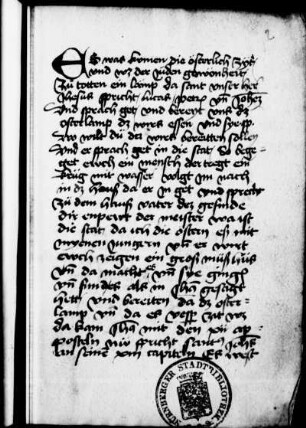 2
Es was komen die österlich zyt
Und wz der juden gewonheit
zu totten ein lamp da sant unser her
Jhesus spricht lucas petrum und Johez
Und sprach got und bereyt uns dz
oster lamp dz wir essen und sprachen
wo wilt du dz wir bereitten sollen
Und er sprach get in die stat So bege-
get euch ein mensch der tregt ein
krug mit waser volgt im nach
in dz haus da er in get und sprecht
zu dem haus vater dez gesinde
dir enpewt der meister wa ist
die stat da ich die ostern es mit
mynen jungern und er wirt
euch zeigen ein gros mushus
und da macht es und sye gingen
und funden als in jhs gesagt
hett und bereiten da dz oster-
lamp und da es vesper zit wz
da kam jhs mit den xii ap-
posteln
an seinem xiii capiteln Es weist
NÜRNBERGER STADTBIBLIOTHEK